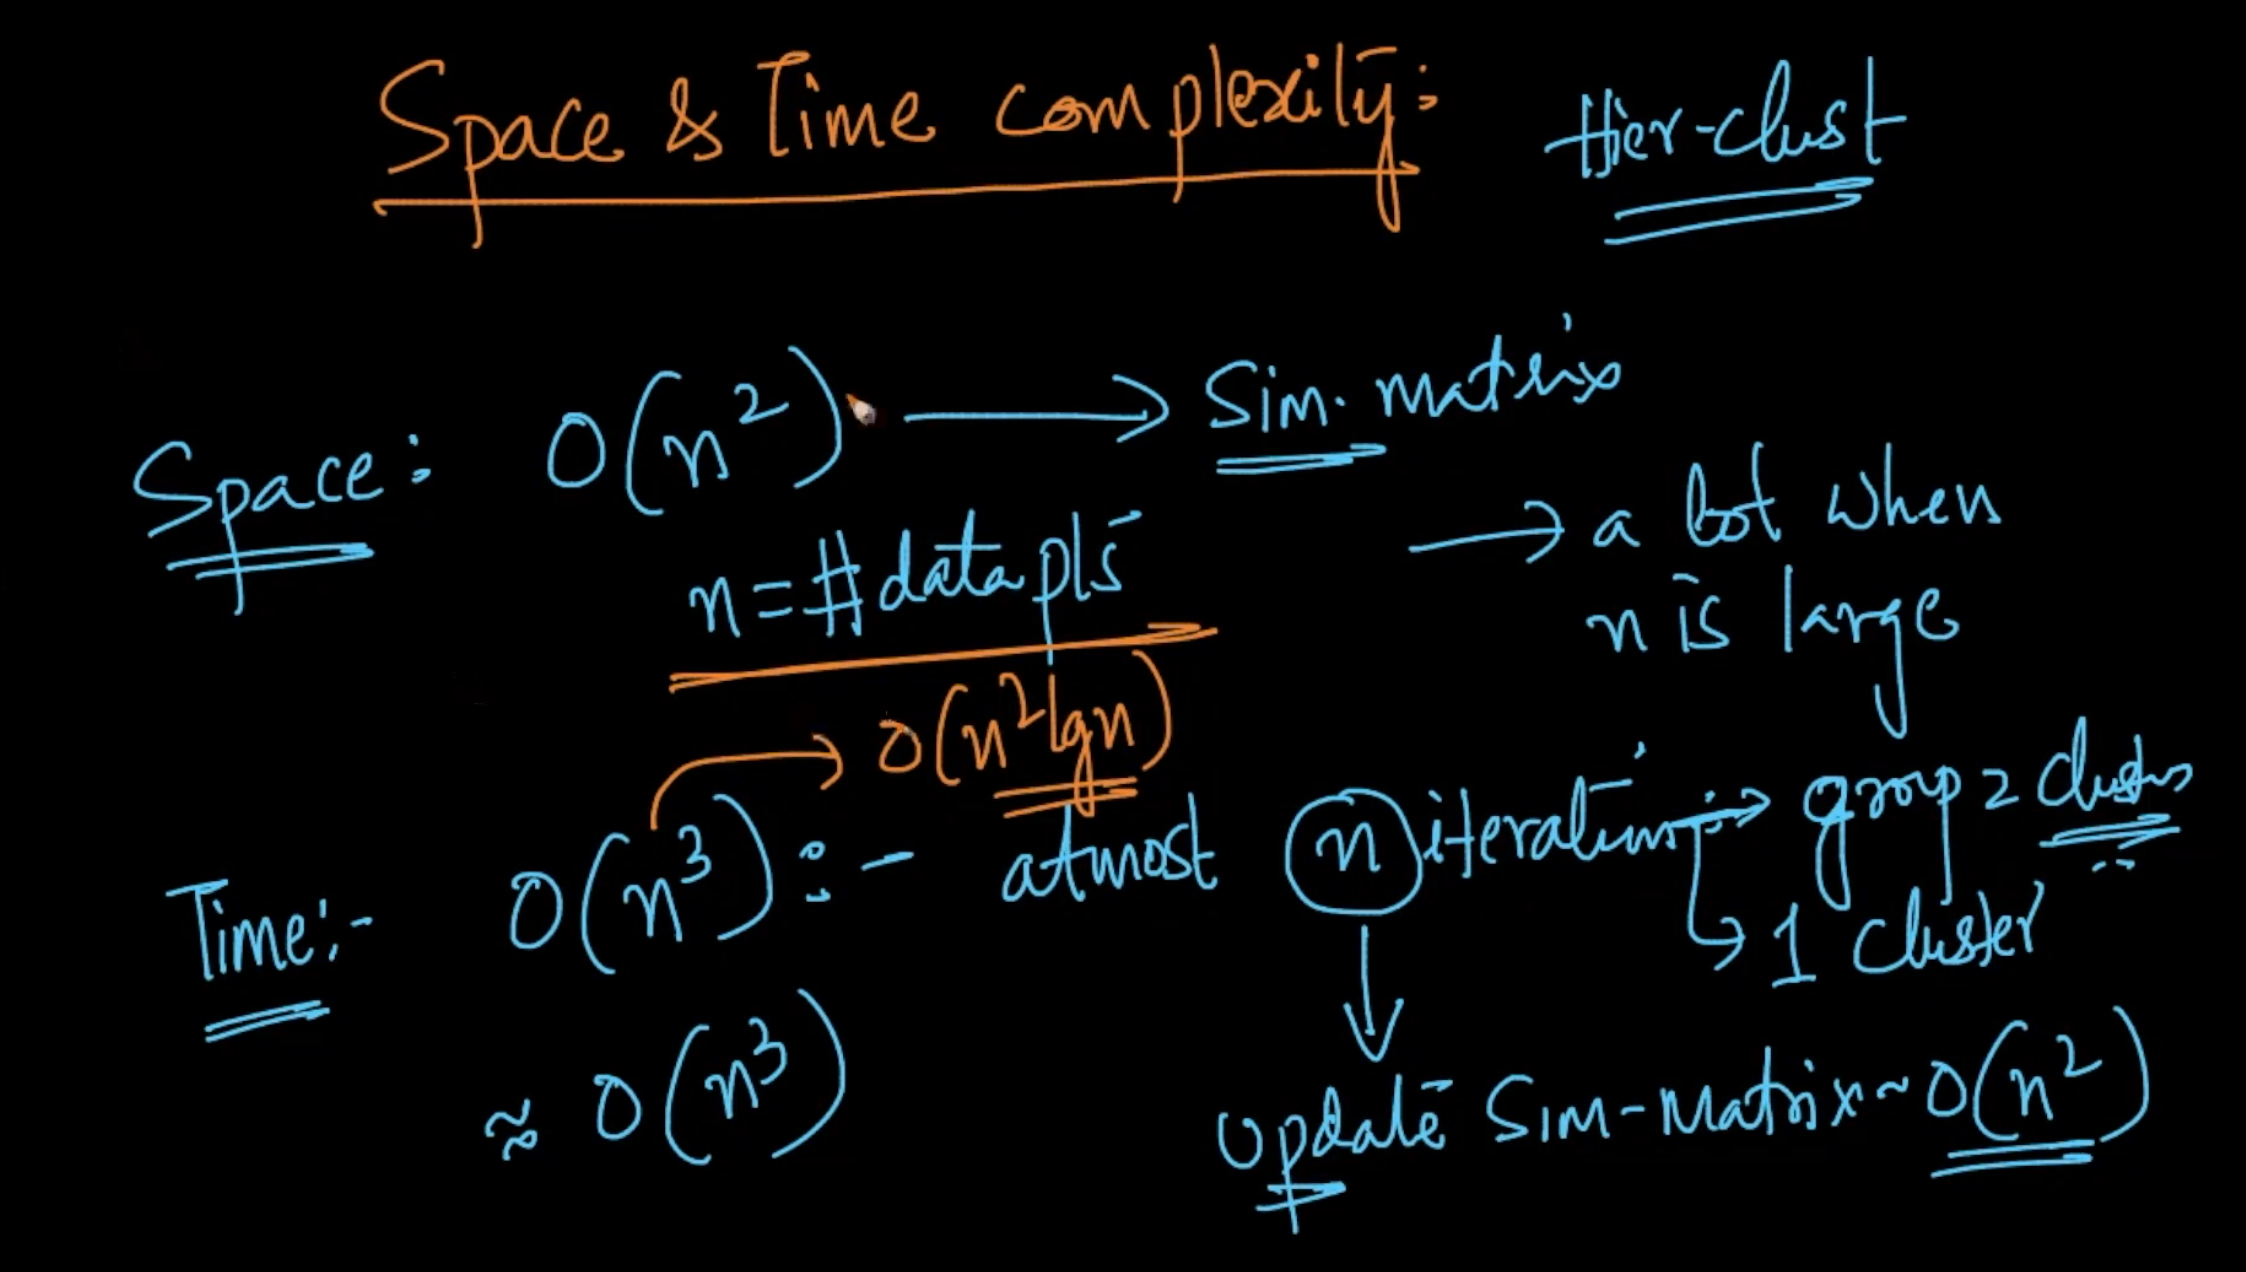 Space & Time complexity: Hier-clust
Space: O(n²) → Sim. matrix
n = # data pts
→ a lot when
n is large
→ O(n² lgn)
Time:- O(n³) :- atmost n iterations → group 2 clusters
↳ 1 cluster
≈ O(n³)
update Sim-Matrix ~ O(n²)